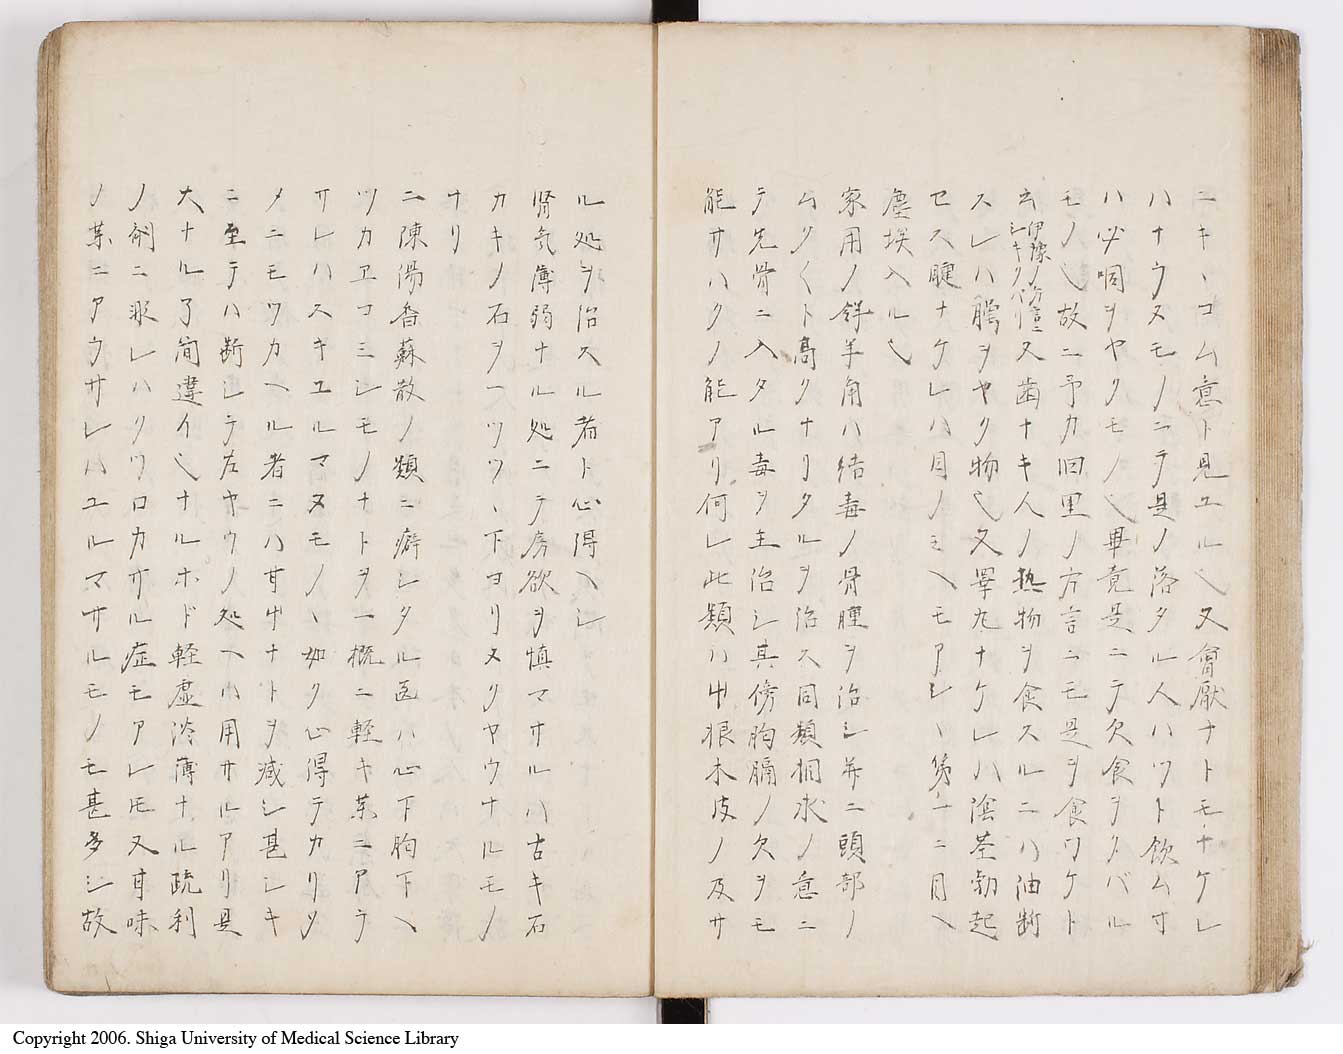 ニキヽコム意ト見ユル乀又會厭ナトモナケレ
ハナラヌモノニテ是ノ落タル人ハツト飲ムヿ
ハ必咽ヲヤクモノ乀畢竟是ニテ欠食ヲクバル
モノ乀故ニ予カ旧里ノ方言ニモ是ヲ食ワケト
云伊豫ノ方言ニシキクバリ又歯ナキ人ノ热物ヲ食スルニハ油断
スレハ腭ヲヤク物乀又睾丸ナケレハ陰茎勃起
セス睫ナケレハ目ノミヘモアシヽ第一ニ目ヘ
塵埃入ル乀
家用ノ羚羊角ハ結毒ノ骨腫ヲ治シ并ニ頭部ノ
ムク〱ト高クナリタルヲ治ス同類桐水ノ意ニ
テ先骨ニ入タル毒ヲ主治シ其傍胸膈ノ欠ヲモ
能サハクノ能アリ何レ此類ハ艸根木皮ノ及サ
ル処ヲ治スル者ト心得ヘシ
腎気薄弱ナル処ニテ房欲ヲ慎マサルハ古キ石
カキノ石ヲ一ツツヽ下ヨリヌクヤウナルモノ
ナリ
二陳湯香蘇散ノ類ニ癖シタル医ハ心下胸下ヘ
ツカヱコミシモノナトヲ一概ニ軽キ茱ニアラ
サレハスキユルマヌモノヽ如ク心得テカリソ
メニモツカヘル者ニハ甘艸ナトヲ减シ甚シキ
ニ至テハ断シテ左ヤウノ処ヘハ用サルアリ是
大ナル了簡違イ乀ナルホド軽虚淡薄ナル疏利
ノ剤ニ非レハクツロカサル症モアレモ又甘味
ノ茱ニアラサレハユルマサルモノモ甚多シ故
Copyright 2006. Shiga University of Medical Science Library